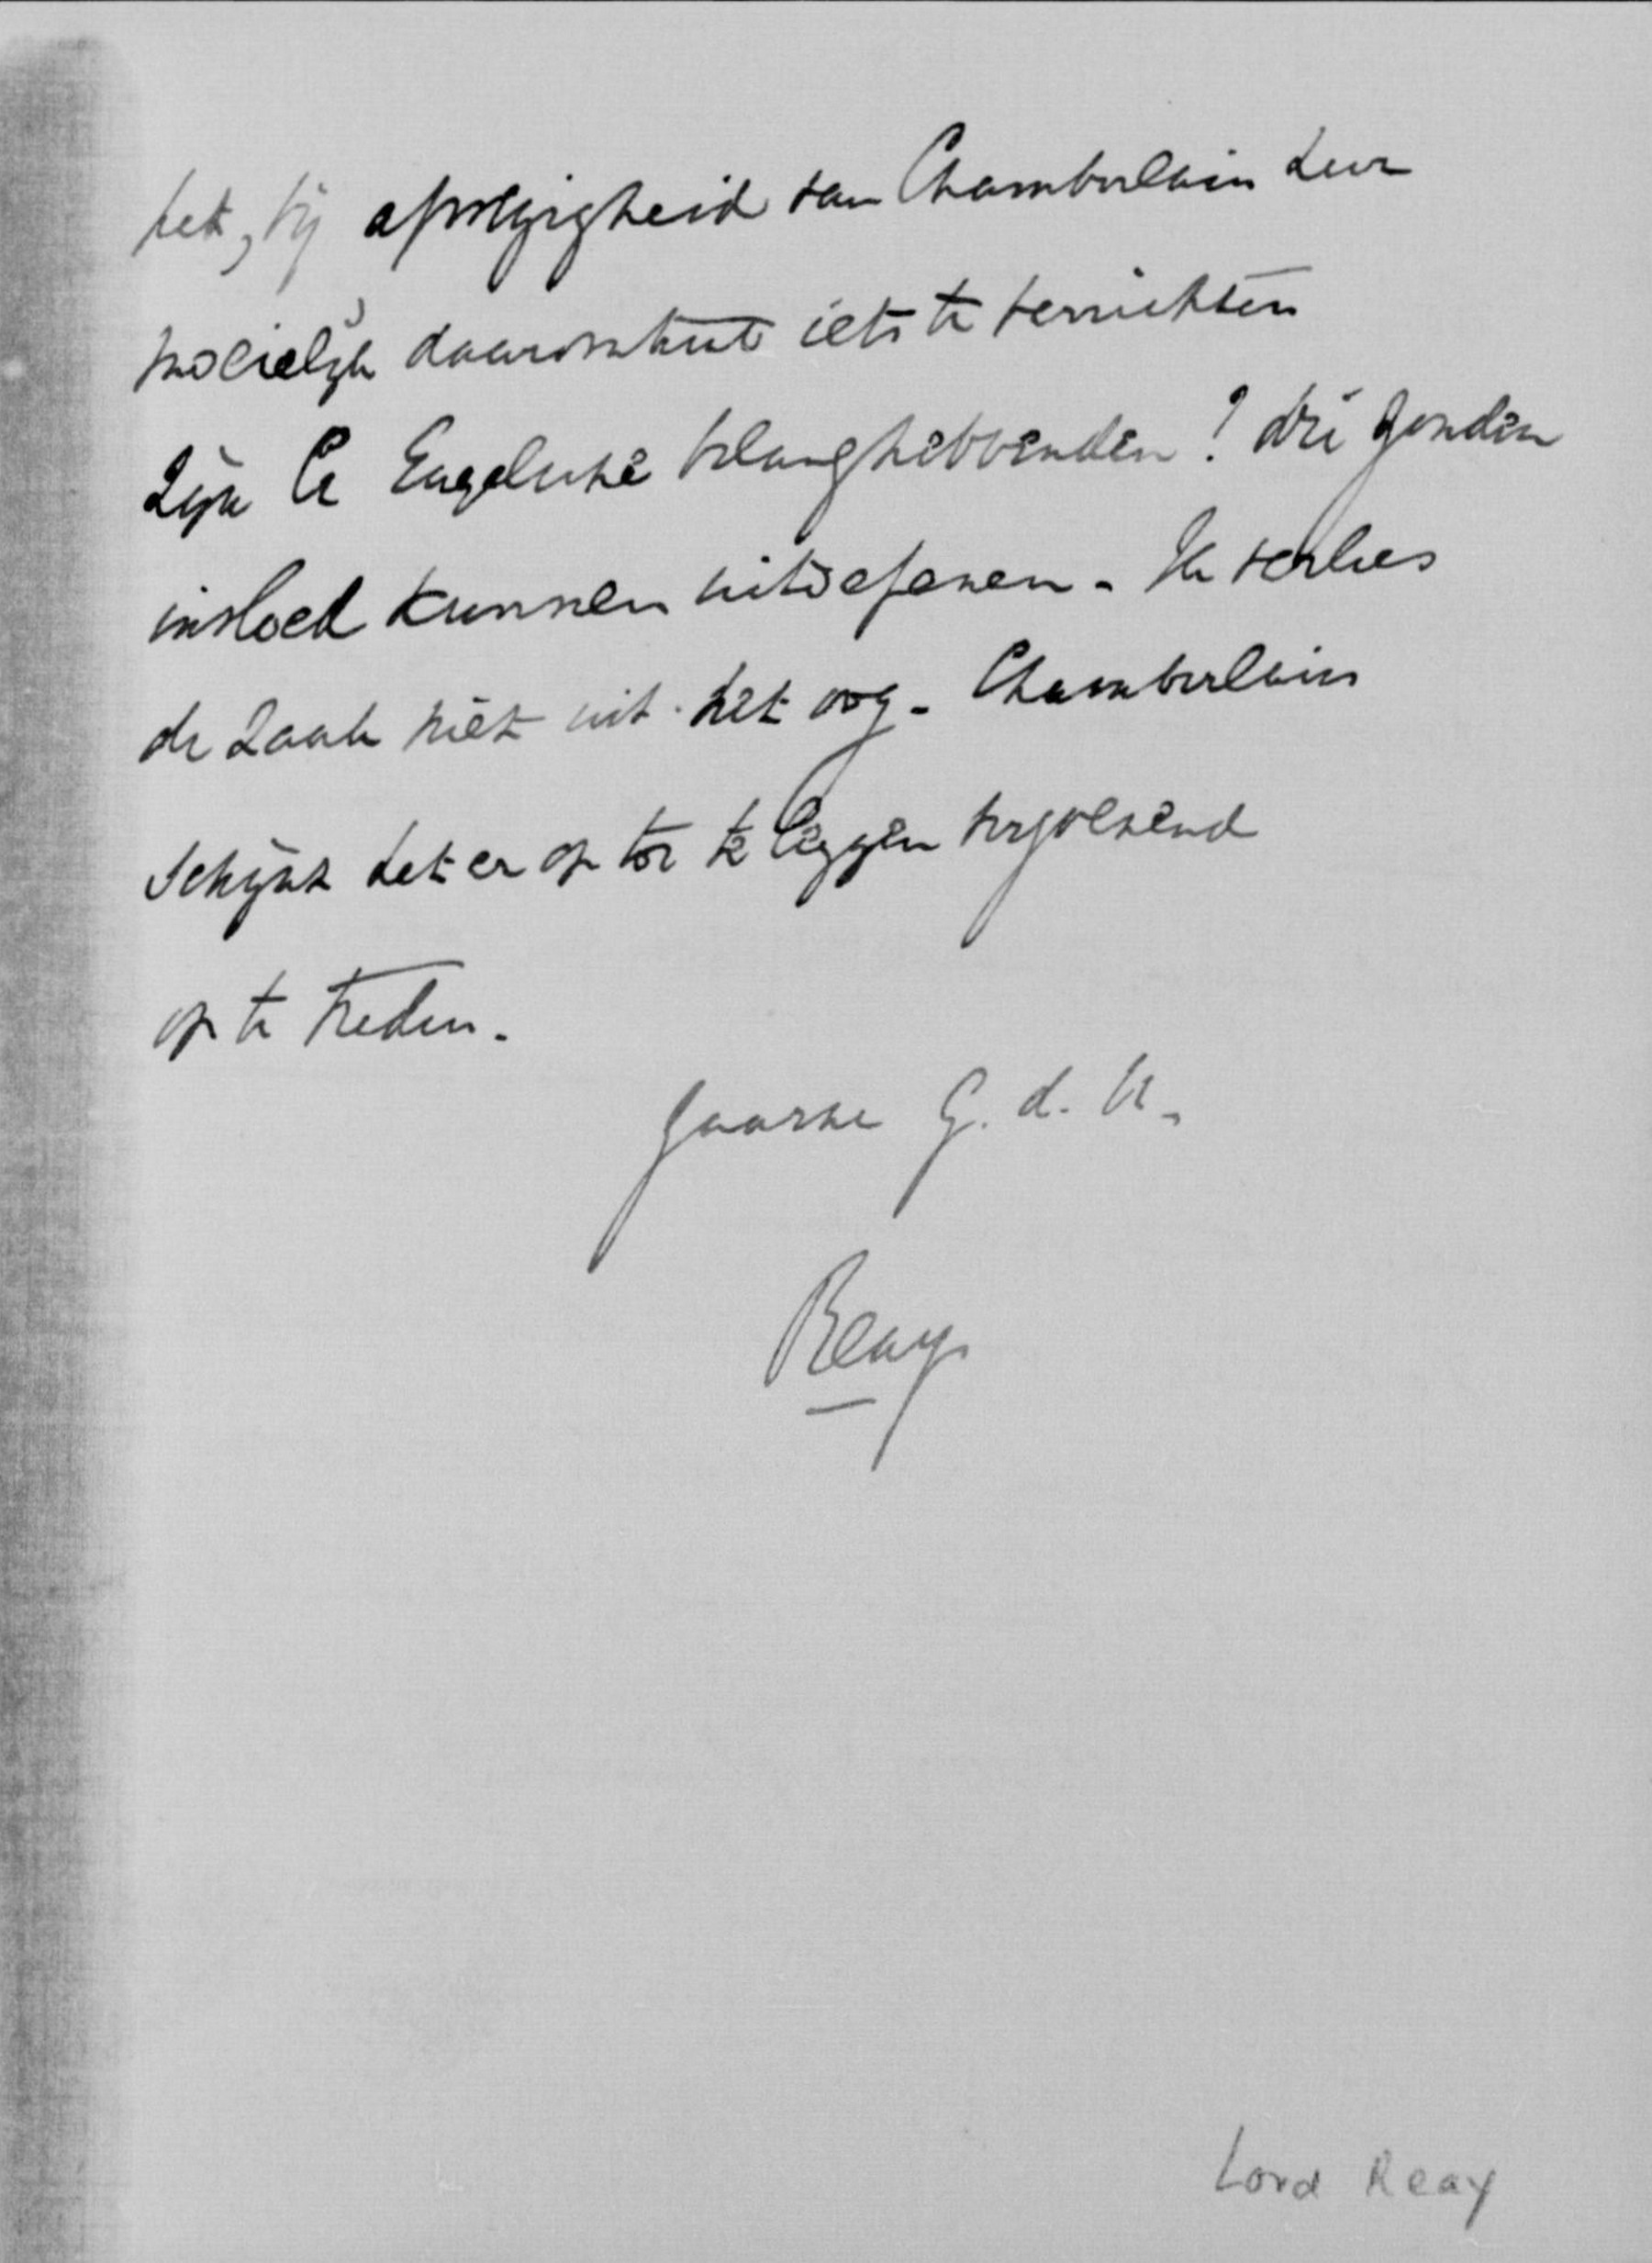 het, bij afwezigheid van Chamberlain zeer
moeielijk daaromtrent iets te verrichten
Zijn er Engelsche belanghebbenden? die zouden
invloed kunnen uitoefenen. Ik verlies
de zaak niet uit het oog. Chamberlain
schijnt het er op toe te leggen verzoenend
op te treden.
Gaarne G. d. U.
Reay
Lord Reay